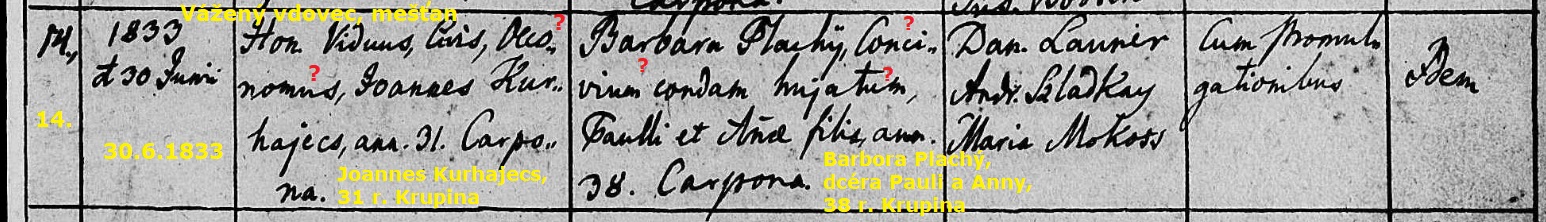 Vážený vdovec, mešťan
14.,
1833
d 30 Junii
Hon. Viduus, Civis, Oeco-
nomus, Joannes Kur-
hajecs, ann. 31. Carpo-
na.
Barbara Plachÿ, Conci-
vium condam hujatum,
Paulli et Añæ filia, ann.
38. Carpona.
Dan. Launer
Andr. Szladkay
Maria Mokoss
Cum Promul-
gationibus
Idem
?
?
?
?
?
14.
30.6.1833
Joannes Kurhajecs,
31 r. Krupina
Barbora Plachý,
dcéra Pauli a Anny,
38 r. Krupina